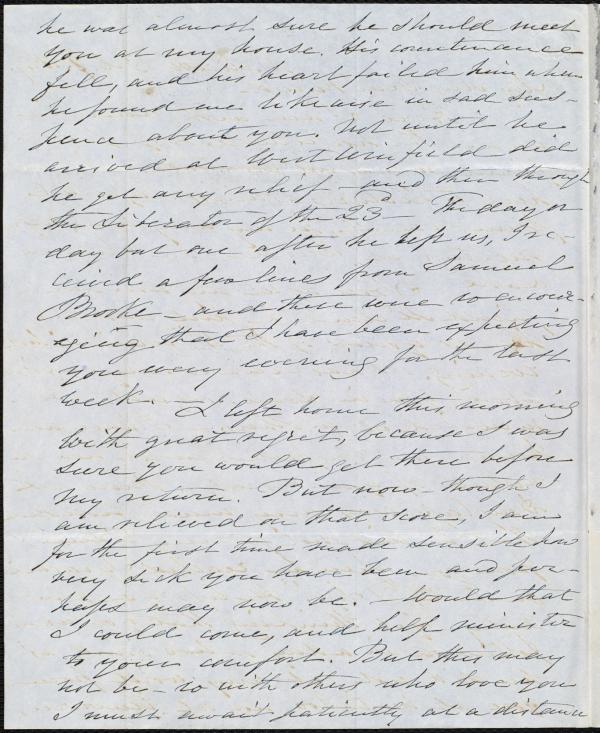 he was almost sure he should meet
you at my house. His countenance
fell, and his heart failed him when
he found me likewise in sad sus-
pence about you. Not until he
arrived at West Winfield did
he get any relief - and then through
the Liberator of the 23d - The day or
day but one after he left us, I re-
ceived a few lines from Samuel
Brooke - and these were so encour-
ageing that I have been expecting
you every evening for the last
week. - I left home this morning
with great regret, because I was
sure you would get there before
my return. But now - though I
am relieved on that score, I am
for the first time made sensible how
very sick you have been and per-
haps may now be. - Would that
I could come, and help minister
to your comfort. But this may
not be - so with others who love you
I must await patiently at a distance